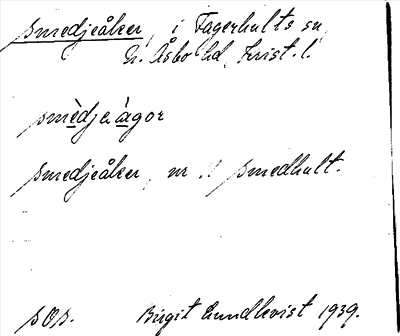 smedjeåker, i Fagerhults sn,
N. Åsbo hd, Krist. l.
smè̱djeà̱gor
smedjeåker, nr 1 Smedhult.
sOs. Birgit Lundkvist 1939.